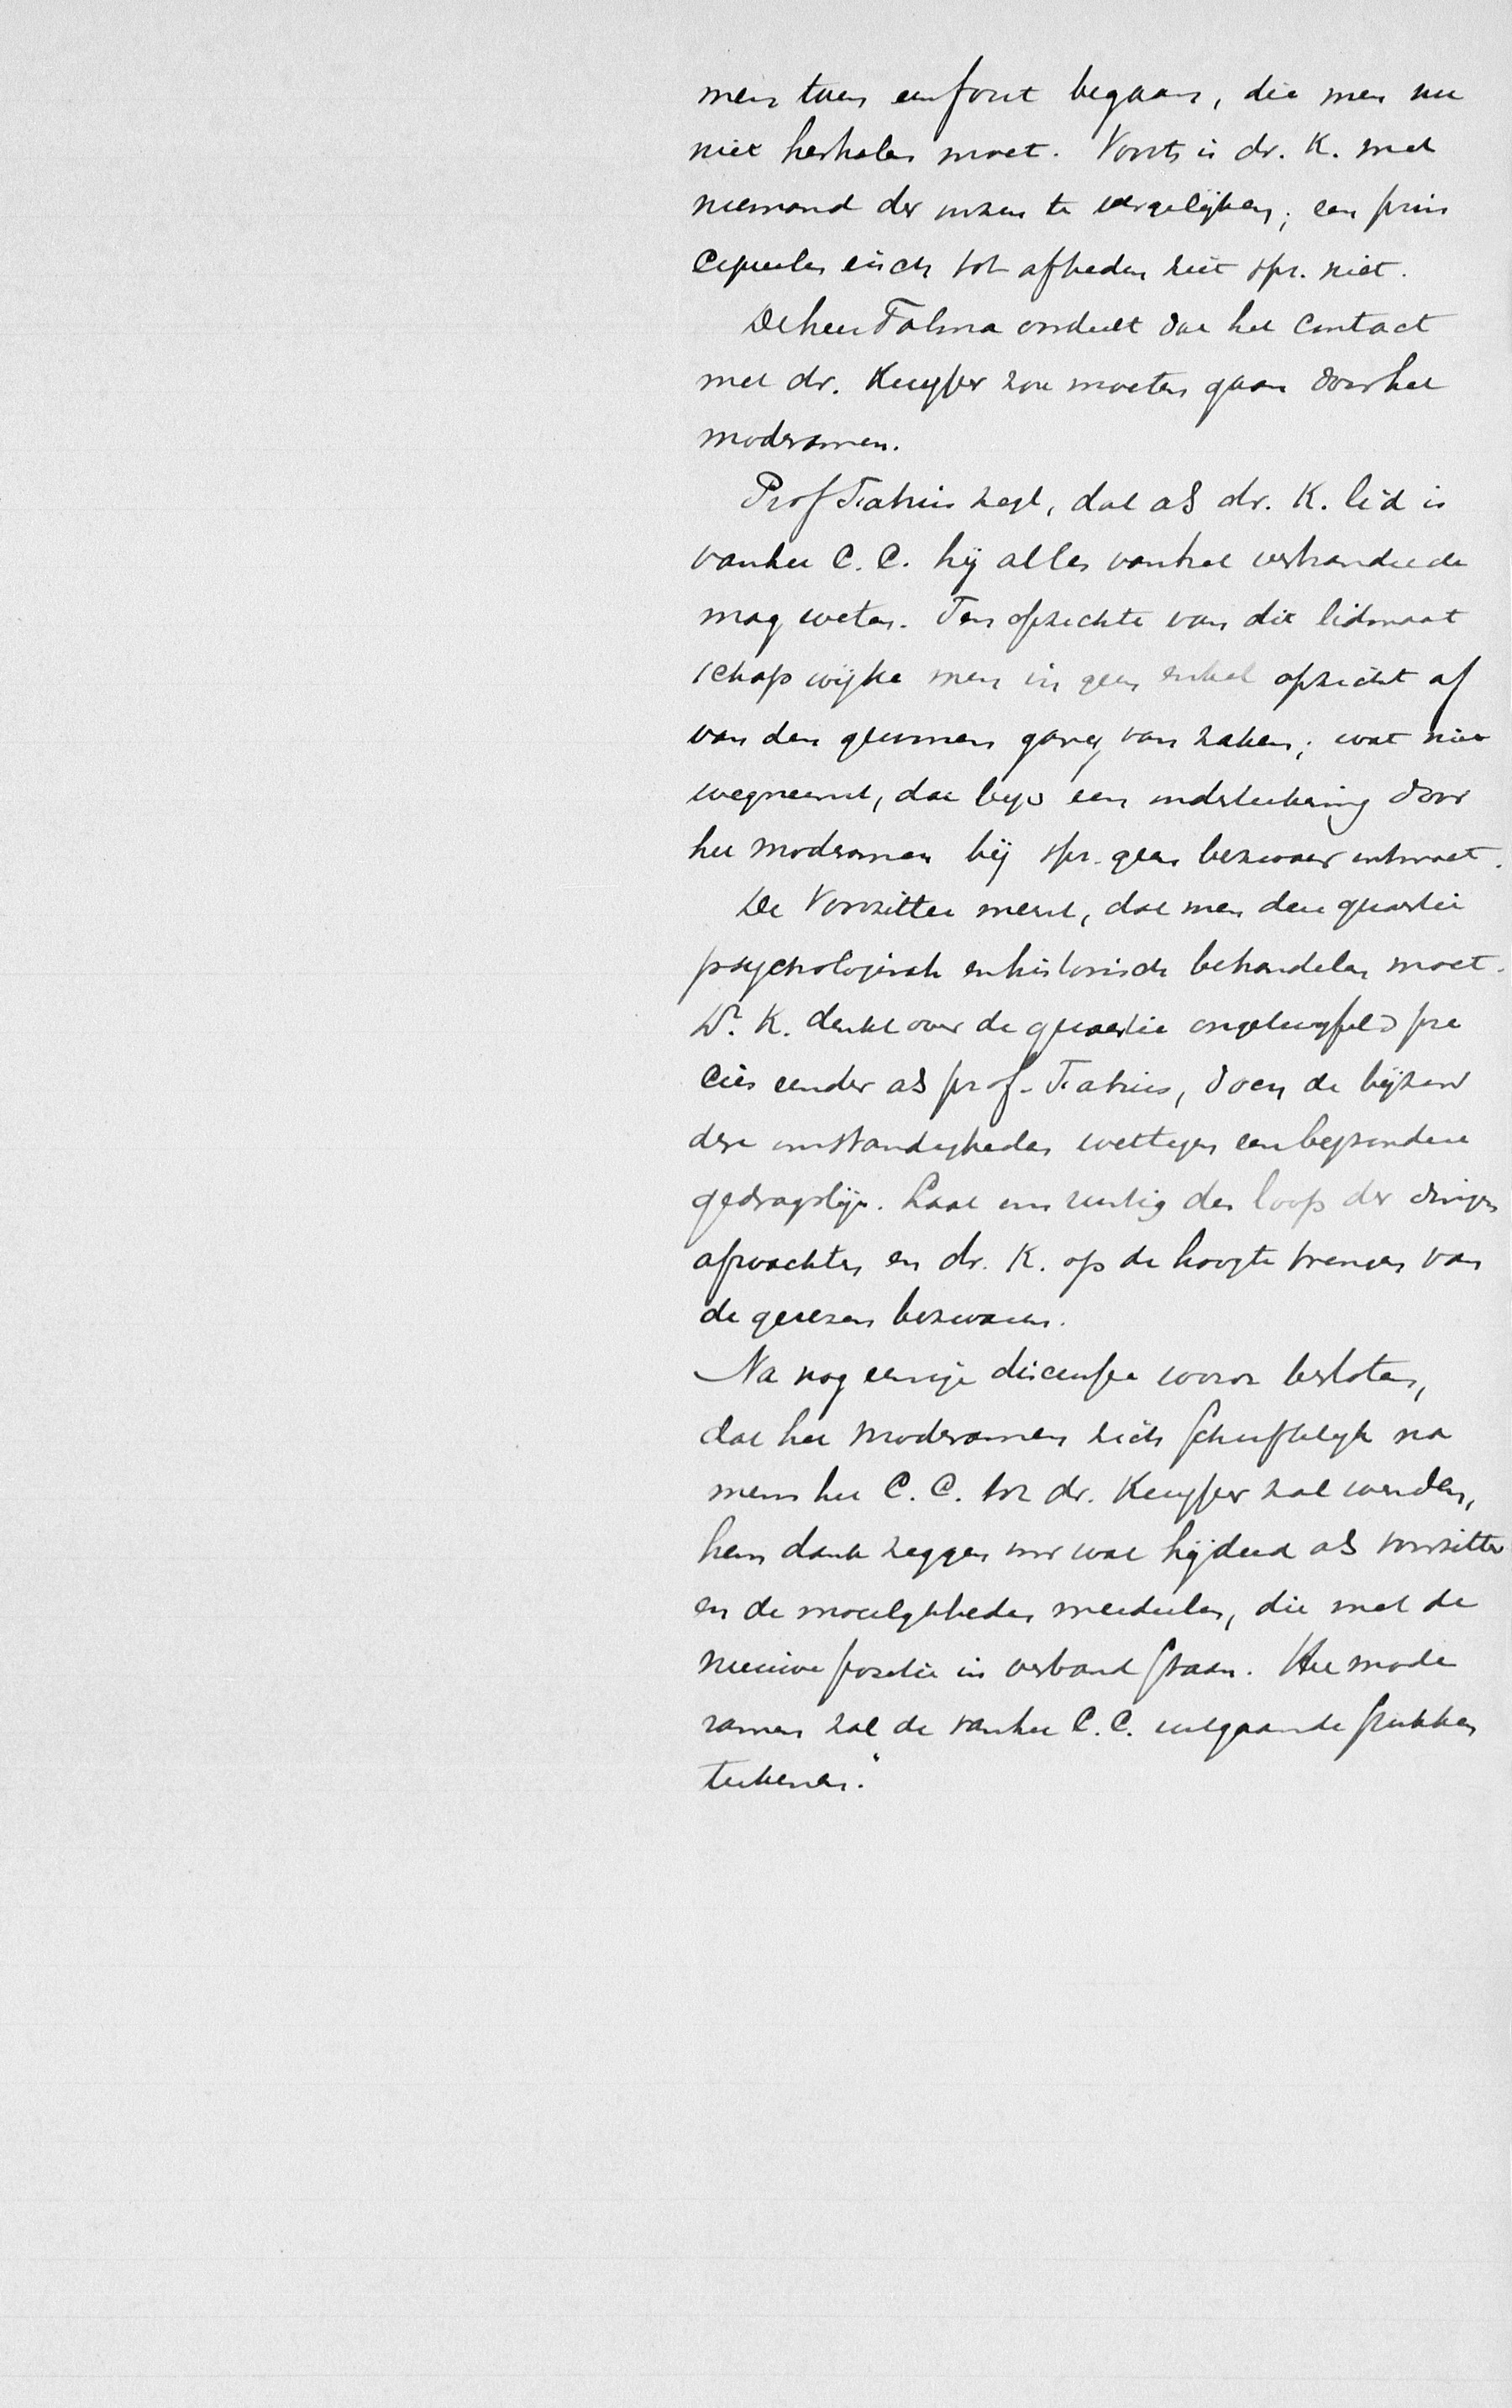 men toen een fout begaan, die men nu
niet herhalen moet. Voorts is dr. K. met
niemand der onzen te vergelijken; een prin
cipieelen eisch tot aftreden ziet spr. niet.
De heer Talma oordeelt dat het contact
met dr. Kuyper zou moeten gaan door het
moderamen.
Prof Fabius zegt, dat als dr. K. lid is
van het C. C. hij alles van het verhandelde
mag weten. Ten opzichte van dit lidmaat
schap wijke men in geen enkel opzicht af
van den gewonen gang van zaken; wat niet
wegneemt, dat bijv een onderteekening door
het moderamen bij spr. geen bezwaar ontmoet.
De Voorzitter meent, dat men deze quaestie
psychologisch en historisch behandelen moet.
Dr. K. denkt over de quaestie ongetwijfeld pre
cies eender als prof. Fabius, doch de bijzon
dere omstandigheden wettigen een bijzondere
gedragslijn. Laat ons rustig den loop der dingen
afwachten en dr. K. op de hoogte brengen van
de gerezen bezwaren.
Na nog eenige discussie wordt besloten,
dat het moderamen zich schriftelijk na
mens het C. C. tot dr. Kuyper zal wenden,
hem dank zeggen voor wat hij deed als voorzitter
en de moeilijkheden meedeelen, die met de
nieuwe positie in verband staan. Het mode
ramen zal de van het C. C. uitgaande stukken
teekenen."